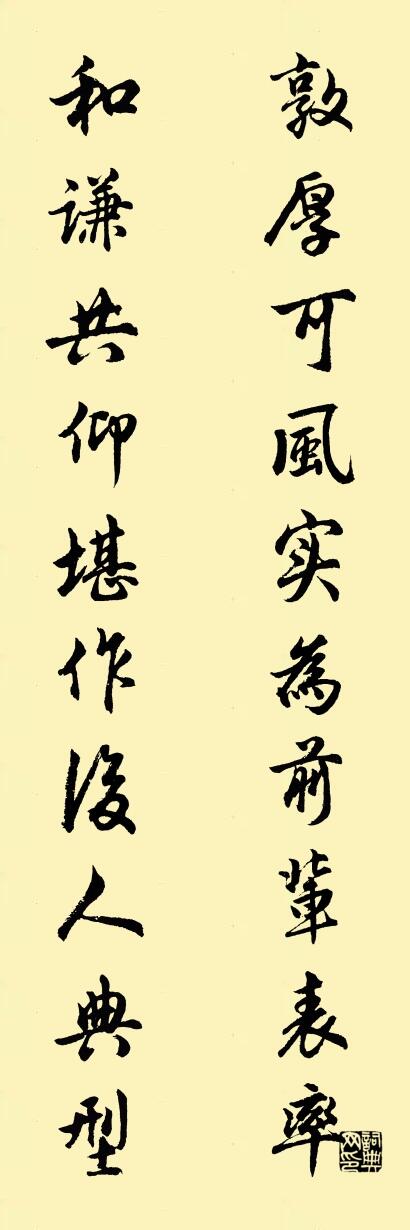 敦厚可風实為前輩表率
和謙共仰堪作後人典型
詞典网印